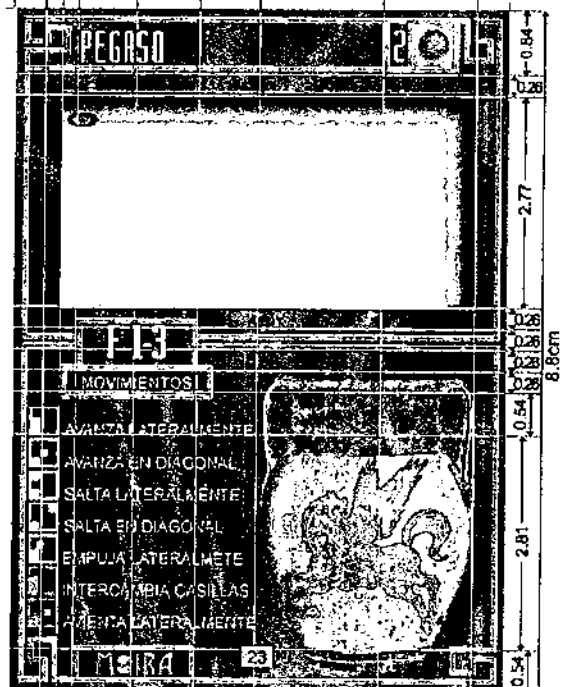 PEGASO 2
0.84
0.28
2.77
0.28
0.28
0.28
0.28
8.8cm
MOVIMIENTOS
0.54
AVANZA LATERALMENTE
AVANZA EN DIAGONAL
SALTA LATERALMENTE
SALTA EN DIAGONAL
2.81
EMPUJA LATERALMETE
INTERCAMBIA CASILLAS
AMENTA LATERALMENTE
MOIRA 23
0.54